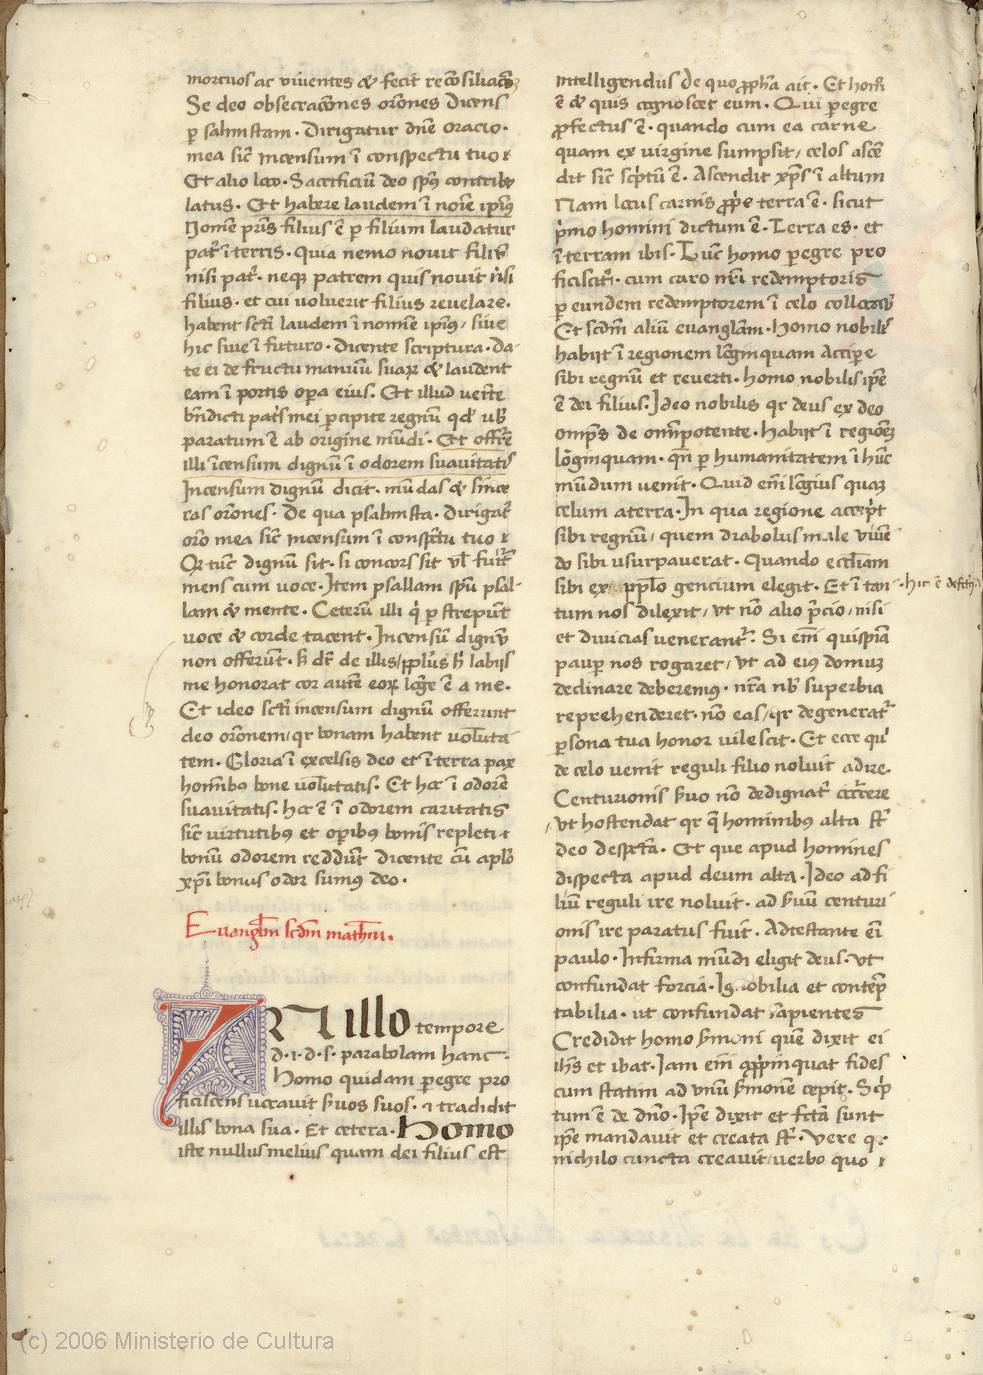 mortuos ac viventes & fecit reco̅siliac̅o̅s
Se deo obsecrac̅ones oro̅nes dicens
p̲ salmistam· Dirigatur dn̅e oracio·
mea sic̅ incensum i̅ conspectu tuo ⁊
Et alio loco· Sacrificiu̅ deo sp̅s contribu
latus· Et habere laudem i̅ noi̅e ip̅iꝰ
Nome̅ pr̅is filius e̅ p̲ filium laudatur
pat̅ i̅ terris· Quia nemo novit filiu̅
nisi pat̅· neqꝫ patrem quis novit nisi
filius· et cui voluerit filius revelare·
habent sc̅ti laudem i̅ nomi̅e ip̅iꝰ/ sive
hic sive i̅ futuro· Dicente scriptura· Da-
te ei de fructu manuu̅ suaꝝ & laudent
eam i̅ portis op̲a eius· Et illud veni̅te
bn̅dicti pat̅s mei p̲cipite regnu̅ qd̅ vb̅
paratum e̅ ab origine mu̅di· Et offr̅e
illi i̅censum dignu̅ i̅ odorem suavitatis
Incensum dignu̅ dicit· mu̅das & since
ras oro̅nes· De qua psalmista· Dirigat̅
oro̅ mea sic̅ incensum i̅ consp̅ctu tuo ⁊
Qr tu̅c dignu̅ sit· si concors sit vl̅ fuit̅
mens cum voce· Item psallam sp̅u psal-
lam & mente· Ceteru̅ illi q̅ p̲ strepu̅t
voce & corde tacent· Incensu̅ dignu̅
non offeru̅t· h̅ dr̅ de illis/ pp̅lus h̅ labijs
me honorat cor aute̅ eoꝝ lo̅ge e̅ a me·
Et ideo sc̅ti incensum dignu̅ offerunt
deo oro̅nem/ qr bonam habent volu̅ta-
tem· Gloria i̅ excelsis deo et i̅ terra pax
homi̅bꝰ bone volu̅tatis· Et hec i̅ odore̅
suavitatis· hec e̅ i̅ odorem caritatis
sic̅ virtutibꝰ et op̲ibꝰ bonis repleti ⁊
bonu̅ odorem reddu̅t dicente cu̅ ap̅lo
xp̅i bonus odor sumꝰ deo·
Evangl̅m scd̅m math̅m·
IN illo tempore
d·i·d·s· parabolam hanc·
Homo quidam p̲egre pro
ficiscens vocavit s̅vos suos· ⁊ tradidit
illis bona sua· Et cetera· Homo
iste nullus melius quam dei filius est
intelligendus de quo pp̅ha ait· Et hom̅
e̅ & quis cognoscet eum· Qui p̲egre
p̲fectus e̅· quando cum ea carne
quam ex virgine sumpsit/ celos asce̅
dit sic̅ sc̅ptu̅ e̅· Ascendit xp̅s i̅ altum
Nam locus carnis pp̅e terra e̅· sicut
p̅mo homini dictum e̅· Terra es· et
i̅ terram ibis· Tu̅c homo p̲egre pro
ficiscit̅· cum caro nr̅i redemptoris
p̲ eundem redemptorem i̅ celo collocat̅
Et scd̅m aliu̅ euangl̅am· Homo nobilis
habijt i̅ regionem lo̅ginquam accip̲e
sibi regnu̅ et reverti· homo nobilis ip̅e
e̅ dei filius· Ideo nobilis qr deus ex deo
omp̅s de om̅potente· habijt i̅ regione̅
lo̅ginquam· qn̅ p̲ humanitatem i̅ hu̅c
mu̅dum venit· Quid eni̅ lo̅gius quaꝫ
celum a terra· In qua regione accep̅t
sibi regnu̅/ quem diabolus male vive̅
do sibi usurpaverat· Quando eccl̅iam
sibi ex pp̅lo gencium elegit· Et i̅ tan-
· hic e̅ defect̅
tum nos dilexit/ vt no̅ alio p̅cio/ nisi
et divicias venerant̅· Si eni̅ quispia̅
paup̲ nos rogaret/ vt ad eiꝰ domuꝫ
declinare deberemꝰ· nr̅a nb̅ superbia
reprehenderet· no̅ eas/ qr degenerat̅
p̲sona tua honor vilescit· Et ecce qi̅
de celo venit reguli filio noluit adire·
Centurionis s̅vo no̅ dedignat̅ occr̅rere
/vt hostendat qr q̅ hominibꝰ alta st̅
deo despc̅ta· Et que apud homines
dispecta apud deum alta· Ideo ad fi
liu̅ reguli ire noluit· ad s̅vu̅ centuri
onis ire paratus fuit· Adtestante ei̅
paulo· Infirma mu̅di eligit deus· vt
confundat forcia· Ignobilia et conte̅p
tabilia· ut confundat sapientes
Credidit homo symoni que̅ dixit ei
ih̅s et ibat· Iam eni̅ app̅inquat fides
cum statim ad vnu̅ s̅mone̅ cepit· Sc̅p
tum e̅ de dn̅o· Ip̅e dixit et fc̅ta sunt
ip̅e mandavit et creata st̅· Vere q̅
nichilo cuncta creavit/ verbo quo ⁊
(c) 2006 Ministerio de Cultura